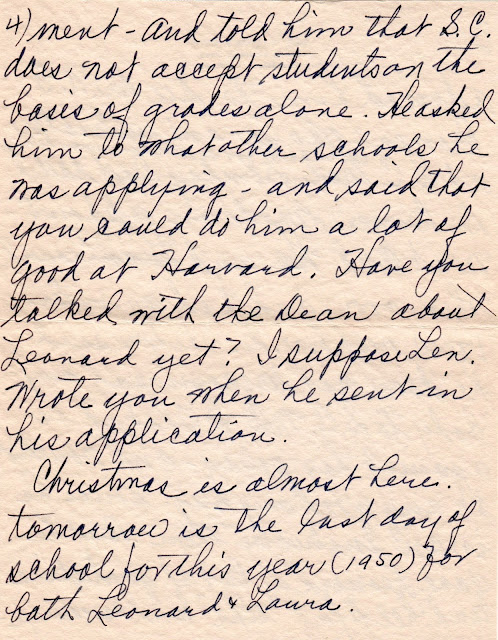 4) ment - and told him that S.C.
does not accept students on the
basis of grades alone. He asked
him to what other schools he
was applying - and said that
you could do him a lot of
good at Harvard. Have you
talked with the Dean about
Leonard yet? I suppose Len.
Wrote you when he sent in
his application.
Christmas is almost here.
tomorrow is the last day of
school for this year (1950) for
both Leonard & Laura.